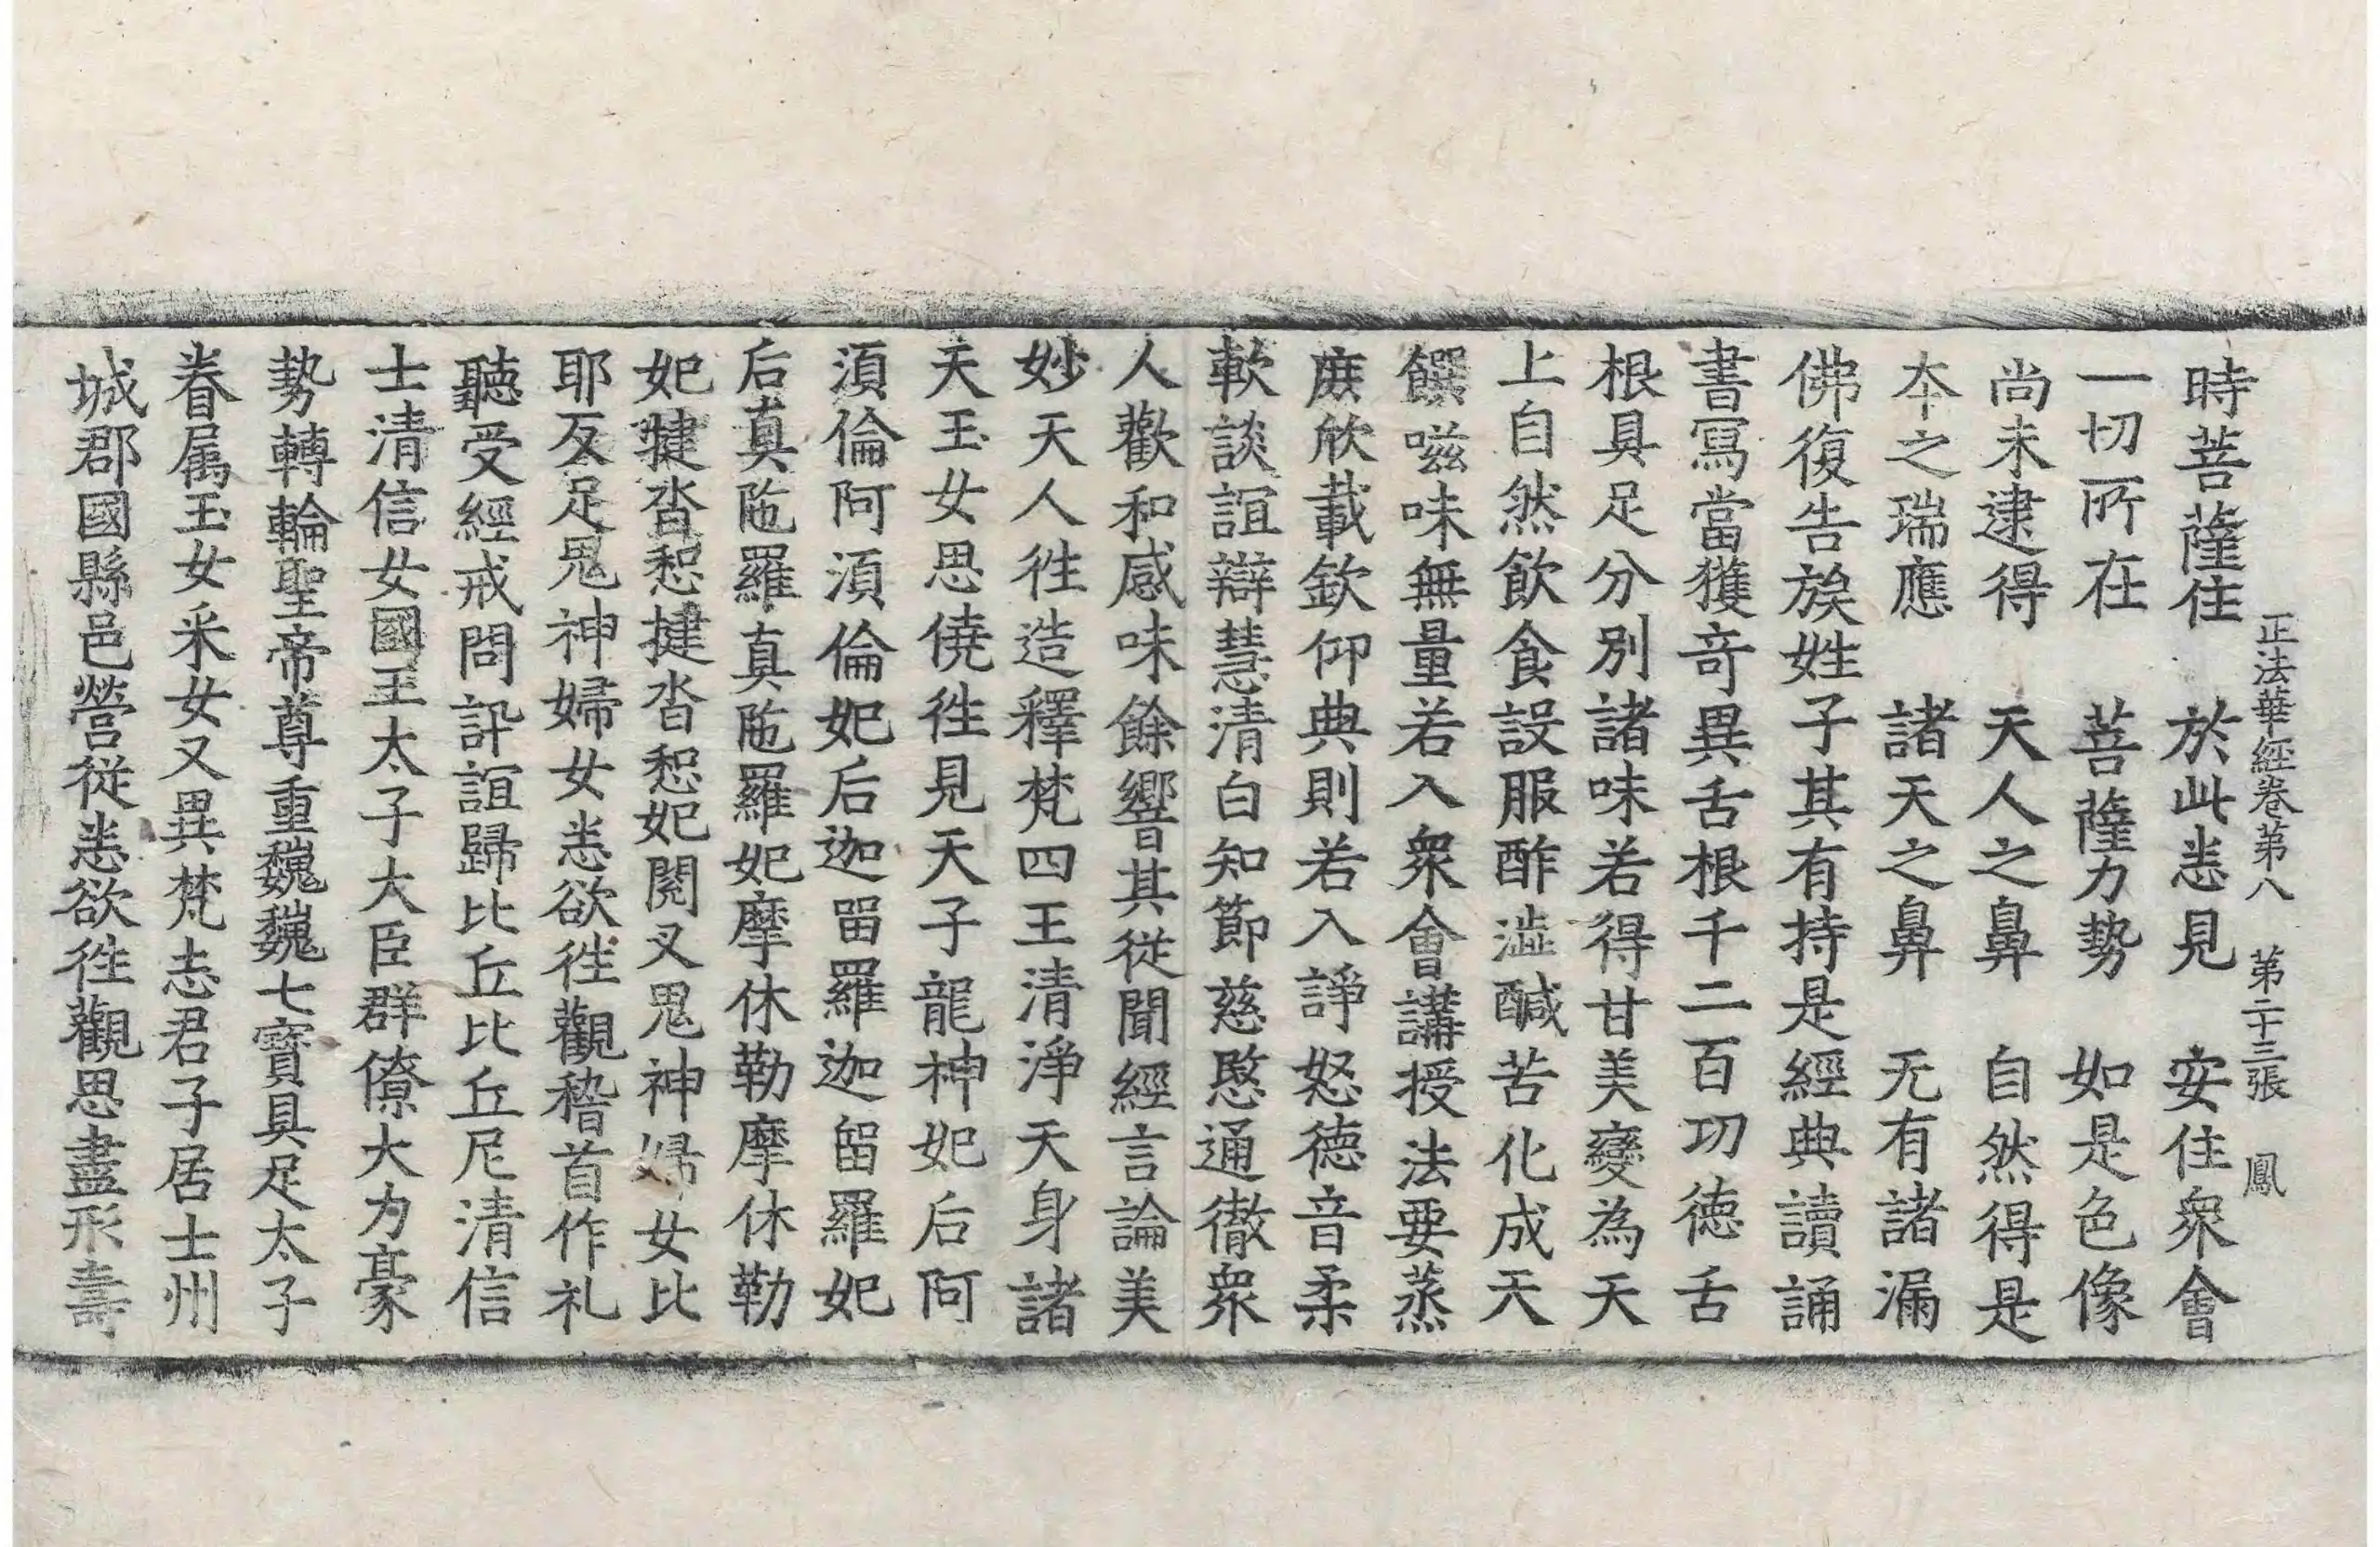 正法華經卷第八　第二十三張　鳳
時菩薩住　於此恚見　安住衆會
一切所在　菩薩力勢　如是色像
尚未逮得　天人之鼻　自然得是
本之瑞應　諸天之鼻　无有諸漏
佛復告族姓子其有持是經典讀誦
書寫當獲竒異舌根千二百功德舌
根具足分別諸味若得甘美變為天
上自然飲食設服酢澁醎苦化成天
饌嗞味無量若入衆會講授法要蒸
庶欣載欽仰典則若入諍怒德音柔
軟談誼辯慧清白知節慈愍通徹衆
人歡和感味餘響其從聞經言論美
妙天人徃造釋梵四王清淨天身諸
天玉女思僥徃見天子龍神妃后阿
須倫阿須倫妃后迦留羅迦留羅妃
后真陁羅真陁羅妃摩休勒摩休勒
妃揵沓惒揵沓惒妃閱叉鬼神婦女比
耶反足鬼神婦女恚欲徃觀稽首作礼
聽受經戒問訊誼歸比丘比丘尼清信
士清信女國王太子大臣群僚大力豪
勢轉輪聖帝尊重巍巍七寶具足太子
眷属玉女采女又異梵志君子居士州
城郡國縣邑營從恚欲徃觀思盡形壽